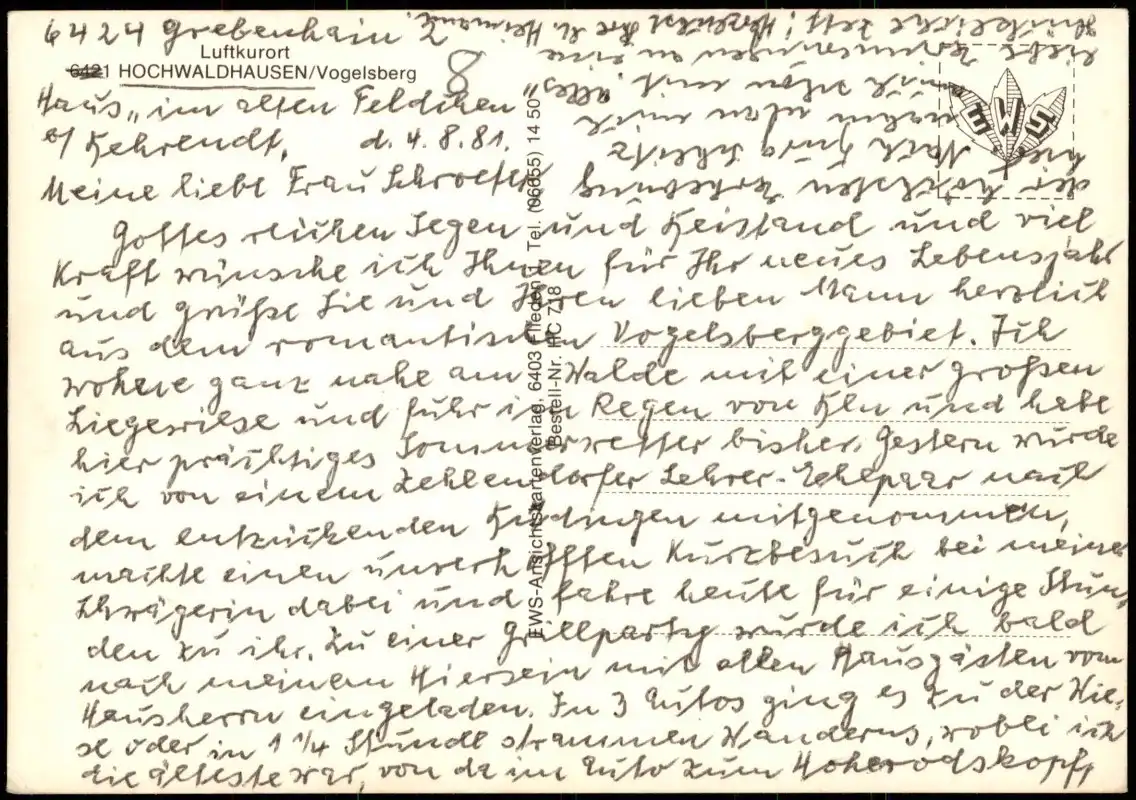 6424 Grebenhain 2
Luftkurort
6421 HOCHWALDHAUSEN/Vogelsberg
8
Haus „im alten Feldchen"
b/ Behrendt, d. 4.8.81.
Meine liebe Frau Schroeter
Gottes reichen Segen und Beistand und viel
Kraft wünsche ich Ihnen für Ihr neues Lebensjahr
und grüße Sie und Ihren lieben Mann herzlich
aus dem romantischen Vogelsberggebiet. Ich
wohne ganz nahe am Walde mit einer großen
Liegewiese und fuhr im Regen von Bln und habe
hier prächtiges Sommerwetter bisher. Gestern wurde
ich von einem Zehlendorfer Lehrer-Ehepaar nach
dem entzückenden Büdingen mitgenommen,
machte einen unverhofften Kurzbesuch bei meiner
Schwägerin dabei und fahre heute für einige Stun-
den zu ihr. Zu einer Grillparty wurde ich bald
nach meinem Hiersein mit allen Hausgästen vom
Hausherrn eingeladen. In 3 Autos ging es zu der Wie-
se oder in 1 1/4 Stunde strammen Wanderns, wobei ich
die älteste war, von da im Auto zum Hoherodskopf,
der höchsten Erhebung
hier. Nach Burg Schlitz
nahm man mich
auch schon mit. „Alles"
liebe Erinnerungen an eine
glückliche Zeit! Herzlichst Ihre
EWS
EWS-Ansichtskartenverlag, 6403 Flieden 1, Tel. (06655) 14 50
Bestell-Nr. HC 7218